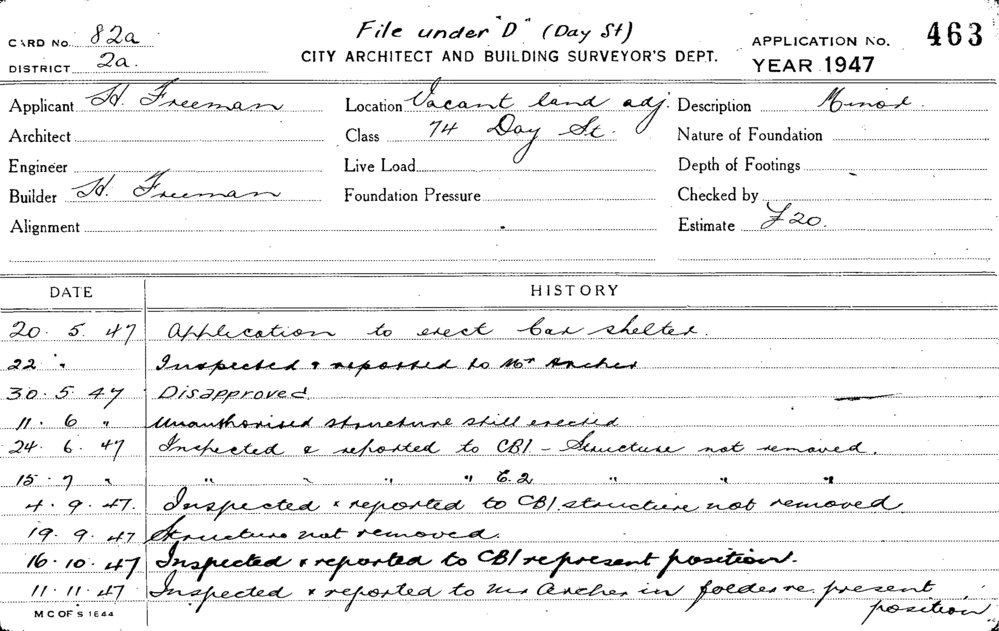 File under "D" (Day St)
CARD No. 82a
DISTRICT 2a.
CITY ARCHITECT AND BUILDING SURVEYOR'S DEPT.
APPLICATION No. 463
YEAR 1947
Applicant H. Freeman
Location Vacant land adj.
Description Minor.
Architect
Class 74 Day St.
Nature of Foundation
Engineer
Live Load
Depth of Footings
Builder H. Freeman
Foundation Pressure
Checked by
Alignment
Estimate £20.
DATE HISTORY
20. 5. 47 Application to erect Car shelter.
22 " Inspected & reported to Mr Archer
30. 5. 47 Disapproved.
11. 6 " Unauthorised structure still erected
24. 6. 47 Inspected & reported to CBI - Structure not removed.
15. 7 " " " " " " "
4. 9. 47. Inspected & reported to CBI structure not removed
19. 9. 47 Structure not removed.
16. 10. 47 Inspected & reported to CBI re present position.
11. 11. 47 Inspected & reported to Mr Archer in folder re. present
position
M C OF S 1644